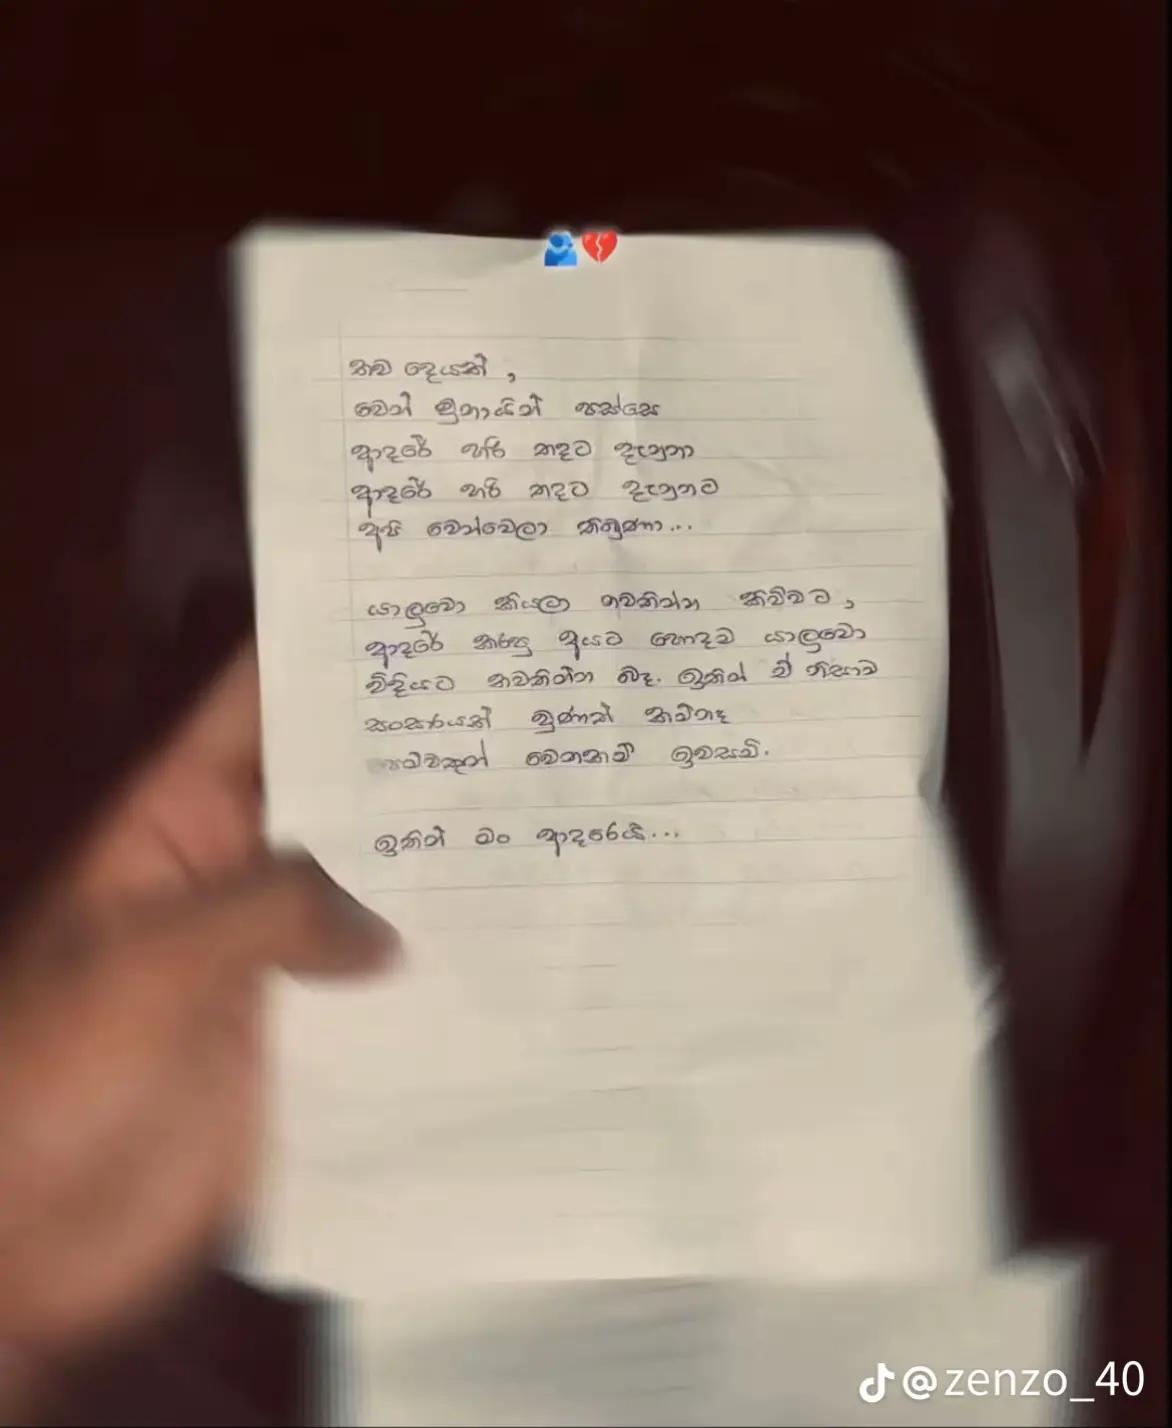 තව දෙයක්,
වෙන් වුනායින් පස්සෙ
ආදරේ හරි තදට දැනුනා
ආදරේ හරි තදට දැනුනට
අපි වෙන්වෙලා තිබුණා...
යාලුවො කියලා නවතින්න කිව්වට,
ආදරේ කරපු අයට හොඳම යාලුවො
විදියට නවතින්න බෑ. ඉතින් ඒ නිසාම
සංසාරයක් වුණත් කමිනෑ
වෙනකම් ඉවසමි.
ඉතින් මං ආදරෙයි...
@zenzo_40